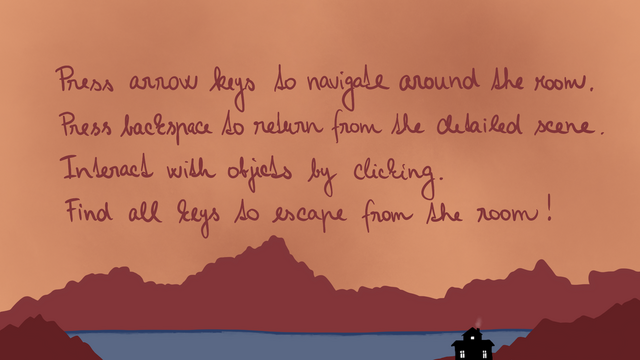 Press arrow keys to navigate around the room.
Press backspace to return from the detailed scene.
Interact with objects by clicking.
Find all keys to escape from the room!